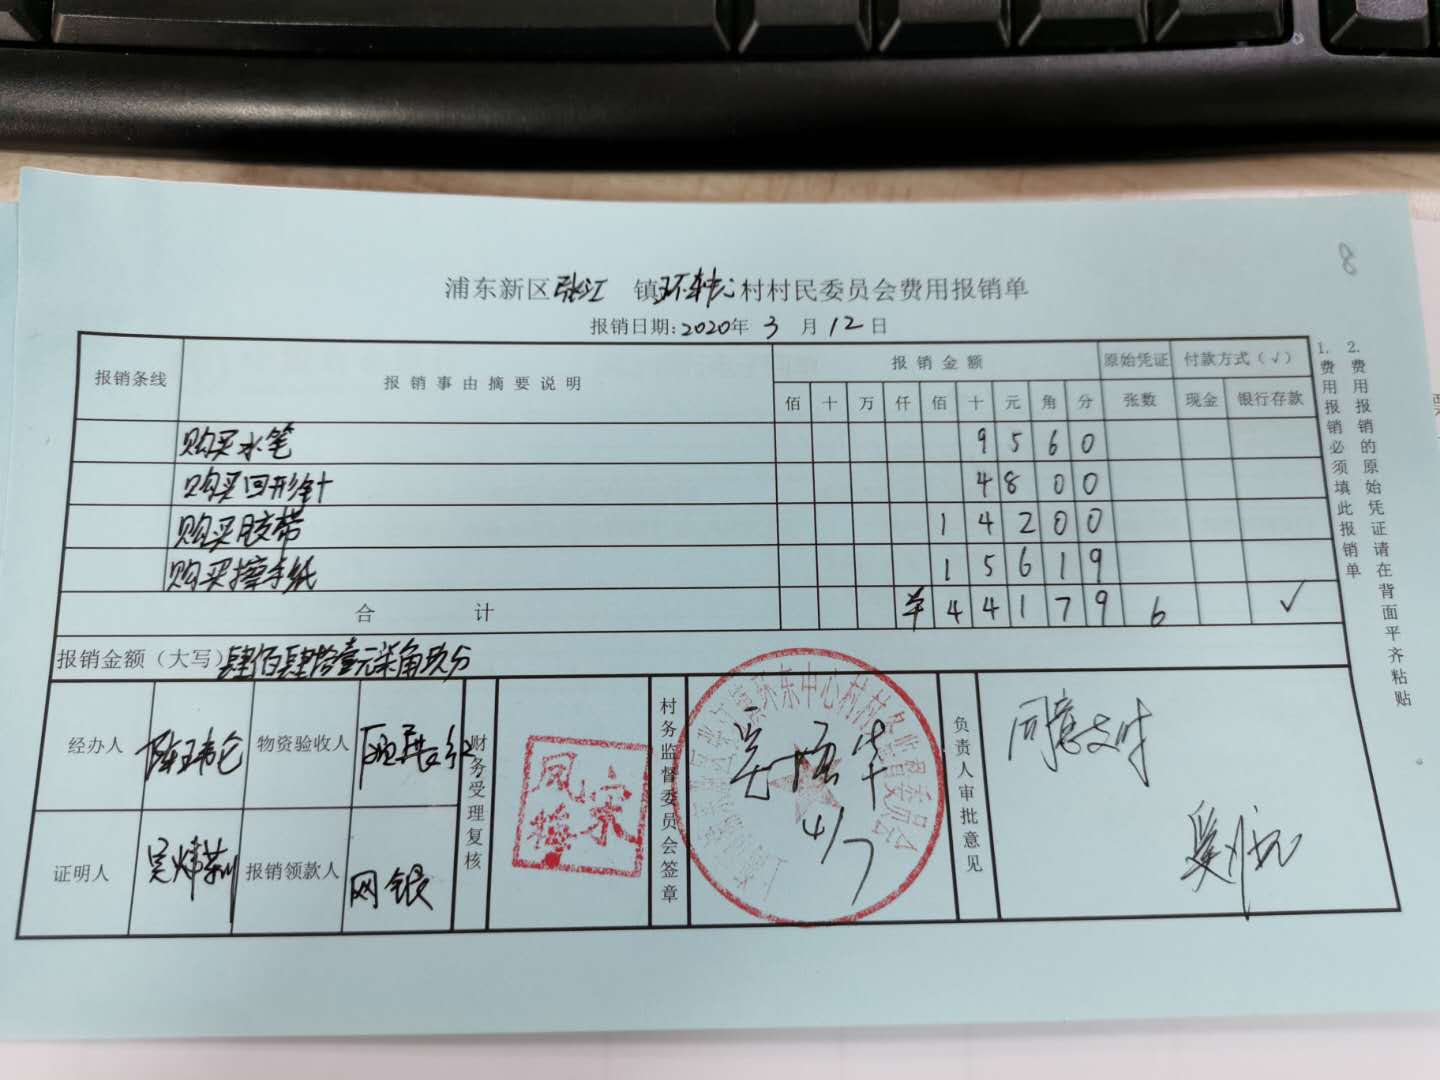 8
浦东新区张江 镇环东中心村村民委员会费用报销单
报销日期:2020年 3 月 12 日
报销条线 报销事由摘要说明 报销金额 原始凭证 付款方式(√)
佰 十 万 仟 佰 十 元 角 分 张数 现金 银行存款
购买水笔 9 5 6 0
购买回形针 4 8 0 0
购买胶带 1 4 2 0 0
购买擦手纸 1 5 6 1 9
合 计 ¥ 4 4 1 7 9 6 √
报销金额(大写)肆佰肆拾壹元柒角玖分
经办人 陈玮仑 物资验收人
证明人 报销领款人 网银
财务受理复核
凤梅 宗
村务监督委员会签章
4/7
负责人审批意见
同意支付
1.费用报销必须填此报销单
2.费用报销的原始凭证请在背面平齐粘贴